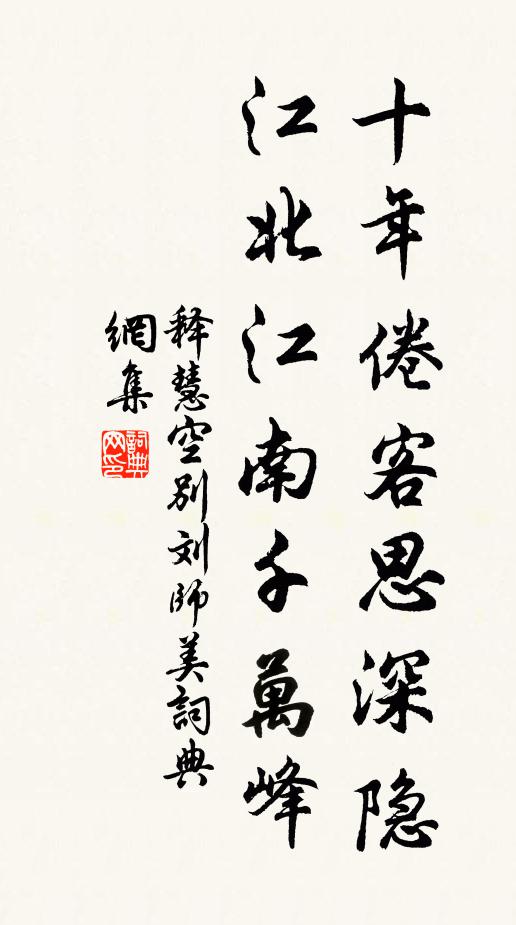 十年倦客思深隐
江北江南千萬峰
释慧空别刘師美詞典
網集
詞典网印